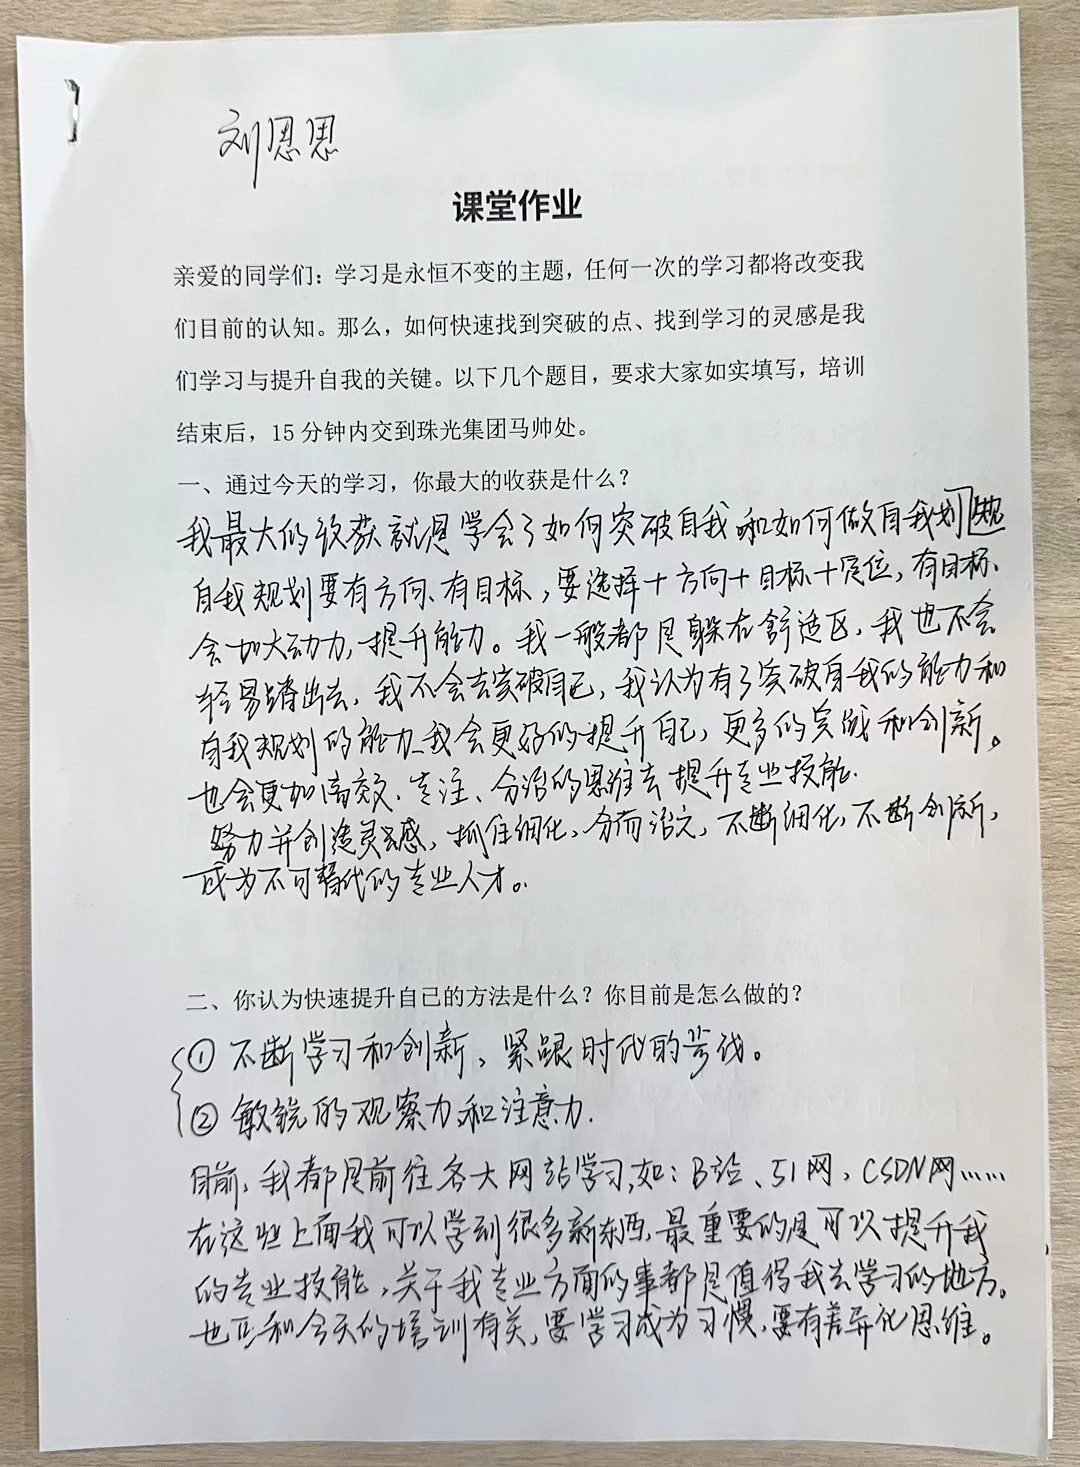 刘恩思
课堂作业
亲爱的同学们：学习是永恒不变的主题，任何一次的学习都将改变我
们目前的认知。那么，如何快速找到突破的点、找到学习的灵感是我
们学习与提升自我的关键。以下几个题目，要求大家如实填写，培训
结束后，15 分钟内交到珠光集团马帅处。
一、通过今天的学习，你最大的收获是什么？
我最大的收获就是学会了如何突破自我和如何做自我划规
自我规划要有方向、有目标，要选择＋方向＋目标＋定位，有目标、
会加大动力，提升能力。我一般都是躲在舒适区，我也不会
轻易踏出去，我不会去突破自己，我认为有了突破自我的能力和
自我规划的能力，我会更好的提升自己，更多的实战和创新。
也会更加高效、专注、分治的思维去提升专业技能.
努力并创造灵感，抓住细化，分而治之，不断细化，不断创新，
成为不可替代的专业人才。
二、你认为快速提升自己的方法是什么？你目前是怎么做的？
① 不断学习和创新，紧跟时代的步伐。
② 敏锐的观察力和注意力.
目前，我都是前往各大网站学习，如：B站、51网，CSDN网……
在这些上面我可以学到很多新东西，最重要的是可以提升我
的专业技能，关于我专业方面的事都是值得我去学习的地方。
也正和今天的培训有关，要学习成为习惯，要有差异化思维。